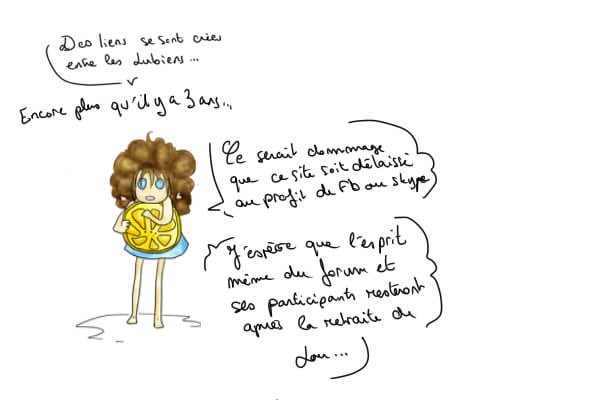 Des liens se sont crées
entre les Lubiens...
Encore plus qu'il y a 3 ans...
Ce serait dommage
que ce site soit délaissé
au profit de Fb ou skype
J'espère que l'esprit
même du forum et
ses participants resteront
après la retraite de
Lou...